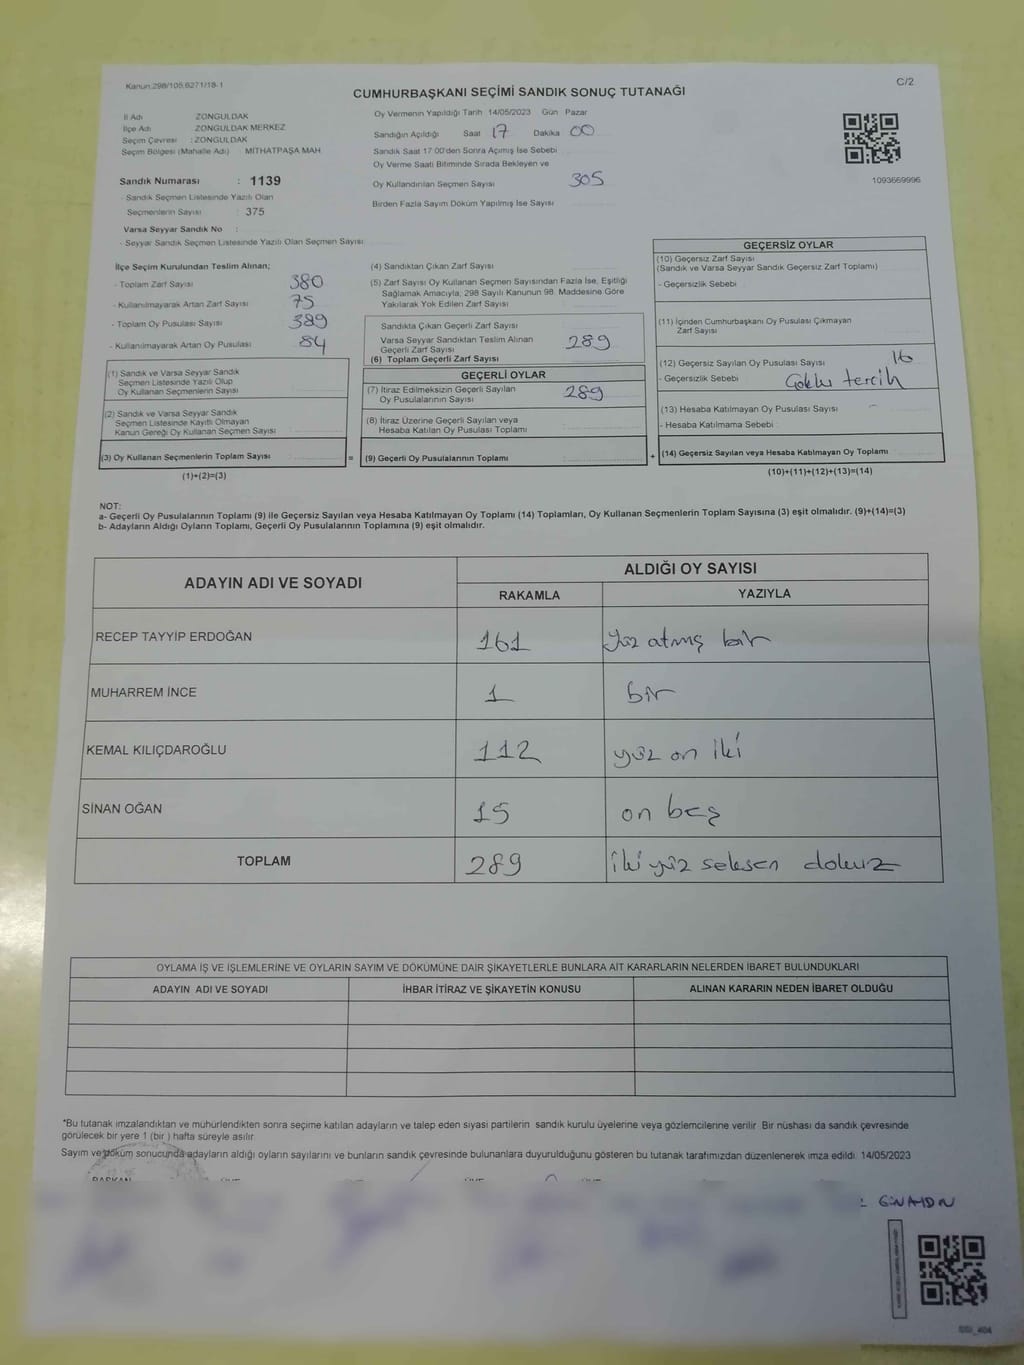 Kanun.298/105,6271/18-1
C/2
CUMHURBAŞKANI SEÇİMİ SANDIK SONUÇ TUTANAĞI
İl Adı ZONGULDAK
İlçe Adı ZONGULDAK MERKEZ
Seçim Çevresi : ZONGULDAK
Seçim Bölgesi (Mahalle Adı) MİTHATPAŞA MAH
Sandık Numarası : 1139
- Sandık Seçmen Listesinde Yazılı Olan
Seçmenlerin Sayısı : 375
Varsa Seyyar Sandık No :
- Seyyar Sandık Seçmen Listesinde Yazılı Olan Seçmen Sayısı
Oy Vermenin Yapıldığı Tarih 14/05/2023 Gün Pazar
Sandığın Açıldığı Saat 17 Dakika 00
Sandık Saat 17 00'den Sonra Açımış İse Sebebi
Oy Verme Saati Bitiminde Sırada Bekleyen ve
Oy Kullandırılan Seçmen Sayısı 305
Birden Fazla Sayım Döküm Yapılmış İse Sayısı
1093669996
İlçe Seçim Kurulundan Teslim Alınan;
- Toplam Zarf Sayısı 380
- Kullanılmayarak Artan Zarf Sayısı 75
- Toplam Oy Pusulası Sayısı 389
- Kullanılmayarak Artan Oy Pusulası 84
(1) Sandık ve Varsa Seyyar Sandık
Seçmen Listesinde Yazılı Olup
Oy Kullanan Seçmenlerin Sayısı
(2) Sandık ve Varsa Seyyar Sandık
Seçmen Listesinde Kayıtlı Olmayan
Kanun Gereği Oy Kullanan Seçmen Sayısı
(3) Oy Kullanan Seçmenlerin Toplam Sayısı
(1)+(2)=(3)
(4) Sandıktan Çıkan Zarf Sayısı
(5) Zarf Sayısı Oy Kullanan Seçmen Sayısından Fazla İse, Eşitliği
Sağlamak Amacıyla; 298 Sayılı Kanunun 98. Maddesine Göre
Yakılarak Yok Edilen Zarf Sayısı
Sandıkta Çıkan Geçerli Zarf Sayısı
Varsa Seyyar Sandıktan Teslim Alınan
Geçerli Zarf Sayısı
(6) Toplam Geçerli Zarf Sayısı 289
GEÇERLİ OYLAR
(7) İtiraz Edilmeksizin Geçerli Sayılan
Oy Pusulalarının Sayısı 289
(8) İtiraz Üzerine Geçerli Sayılan veya
Hesaba Katılan Oy Pusulası Toplamı
= (9) Geçerli Oy Pusulalarının Toplamı
GEÇERSİZ OYLAR
(10) Geçersiz Zarf Sayısı
(Sandık ve Varsa Seyyar Sandık Geçersiz Zarf Toplamı)
- Geçersizlik Sebebi
(11) İçinden Cumhurbaşkanı Oy Pusulası Çıkmayan
Zarf Sayısı
(12) Geçersiz Sayılan Oy Pusulası Sayısı 16
- Geçersizlik Sebebi Çoklu tercih
(13) Hesaba Katılmayan Oy Pusulası Sayısı -
- Hesaba Katılmama Sebebi
+ (14) Geçersiz Sayılan veya Hesaba Katılmayan Oy Toplamı
(10)+(11)+(12)+(13)=(14)
NOT:
a- Geçerli Oy Pusulalarının Toplamı (9) ile Geçersiz Sayılan veya Hesaba Katılmayan Oy Toplamı (14) Toplamları, Oy Kullanan Seçmenlerin Toplam Sayısına (3) eşit olmalıdır. (9)+(14)=(3)
b- Adayların Aldığı Oyların Toplamı, Geçerli Oy Pusulalarının Toplamına (9) eşit olmalıdır.
ADAYIN ADI VE SOYADI
ALDIĞI OY SAYISI
RAKAMLA YAZIYLA
RECEP TAYYİP ERDOĞAN 161 yüz atmış bir
MUHARREM İNCE 1 bir
KEMAL KILIÇDAROĞLU 112 yüz on iki
SİNAN OĞAN 15 on beş
TOPLAM 289 iki yüz seksen dokuz
OYLAMA İŞ VE İŞLEMLERİNE VE OYLARIN SAYIM VE DÖKÜMÜNE DAİR ŞİKAYETLERLE BUNLARA AİT KARARLARIN NELERDEN İBARET BULUNDUKLARI
ADAYIN ADI VE SOYADI İHBAR İTİRAZ VE ŞİKAYETİN KONUSU ALINAN KARARIN NEDEN İBARET OLDUĞU
*Bu tutanak imzalandıktan ve mühürlendikten sonra seçime katılan adayların ve talep eden siyasi partilerin sandık kurulu üyelerine veya gözlemcilerine verilir. Bir nüshası da sandık çevresinde
görülecek bir yere 1 (bir ) hafta süreyle asılır
Sayım ve döküm sonucunda adayların aldığı oyların sayılarını ve bunların sandık çevresinde bulunanlara duyurulduğunu gösteren bu tutanak tarafımızdan düzenlenerek imza edildi. 14/05/2023
BAŞKAN ÜYE ÜYE ÜYE
GÜNAYDIN